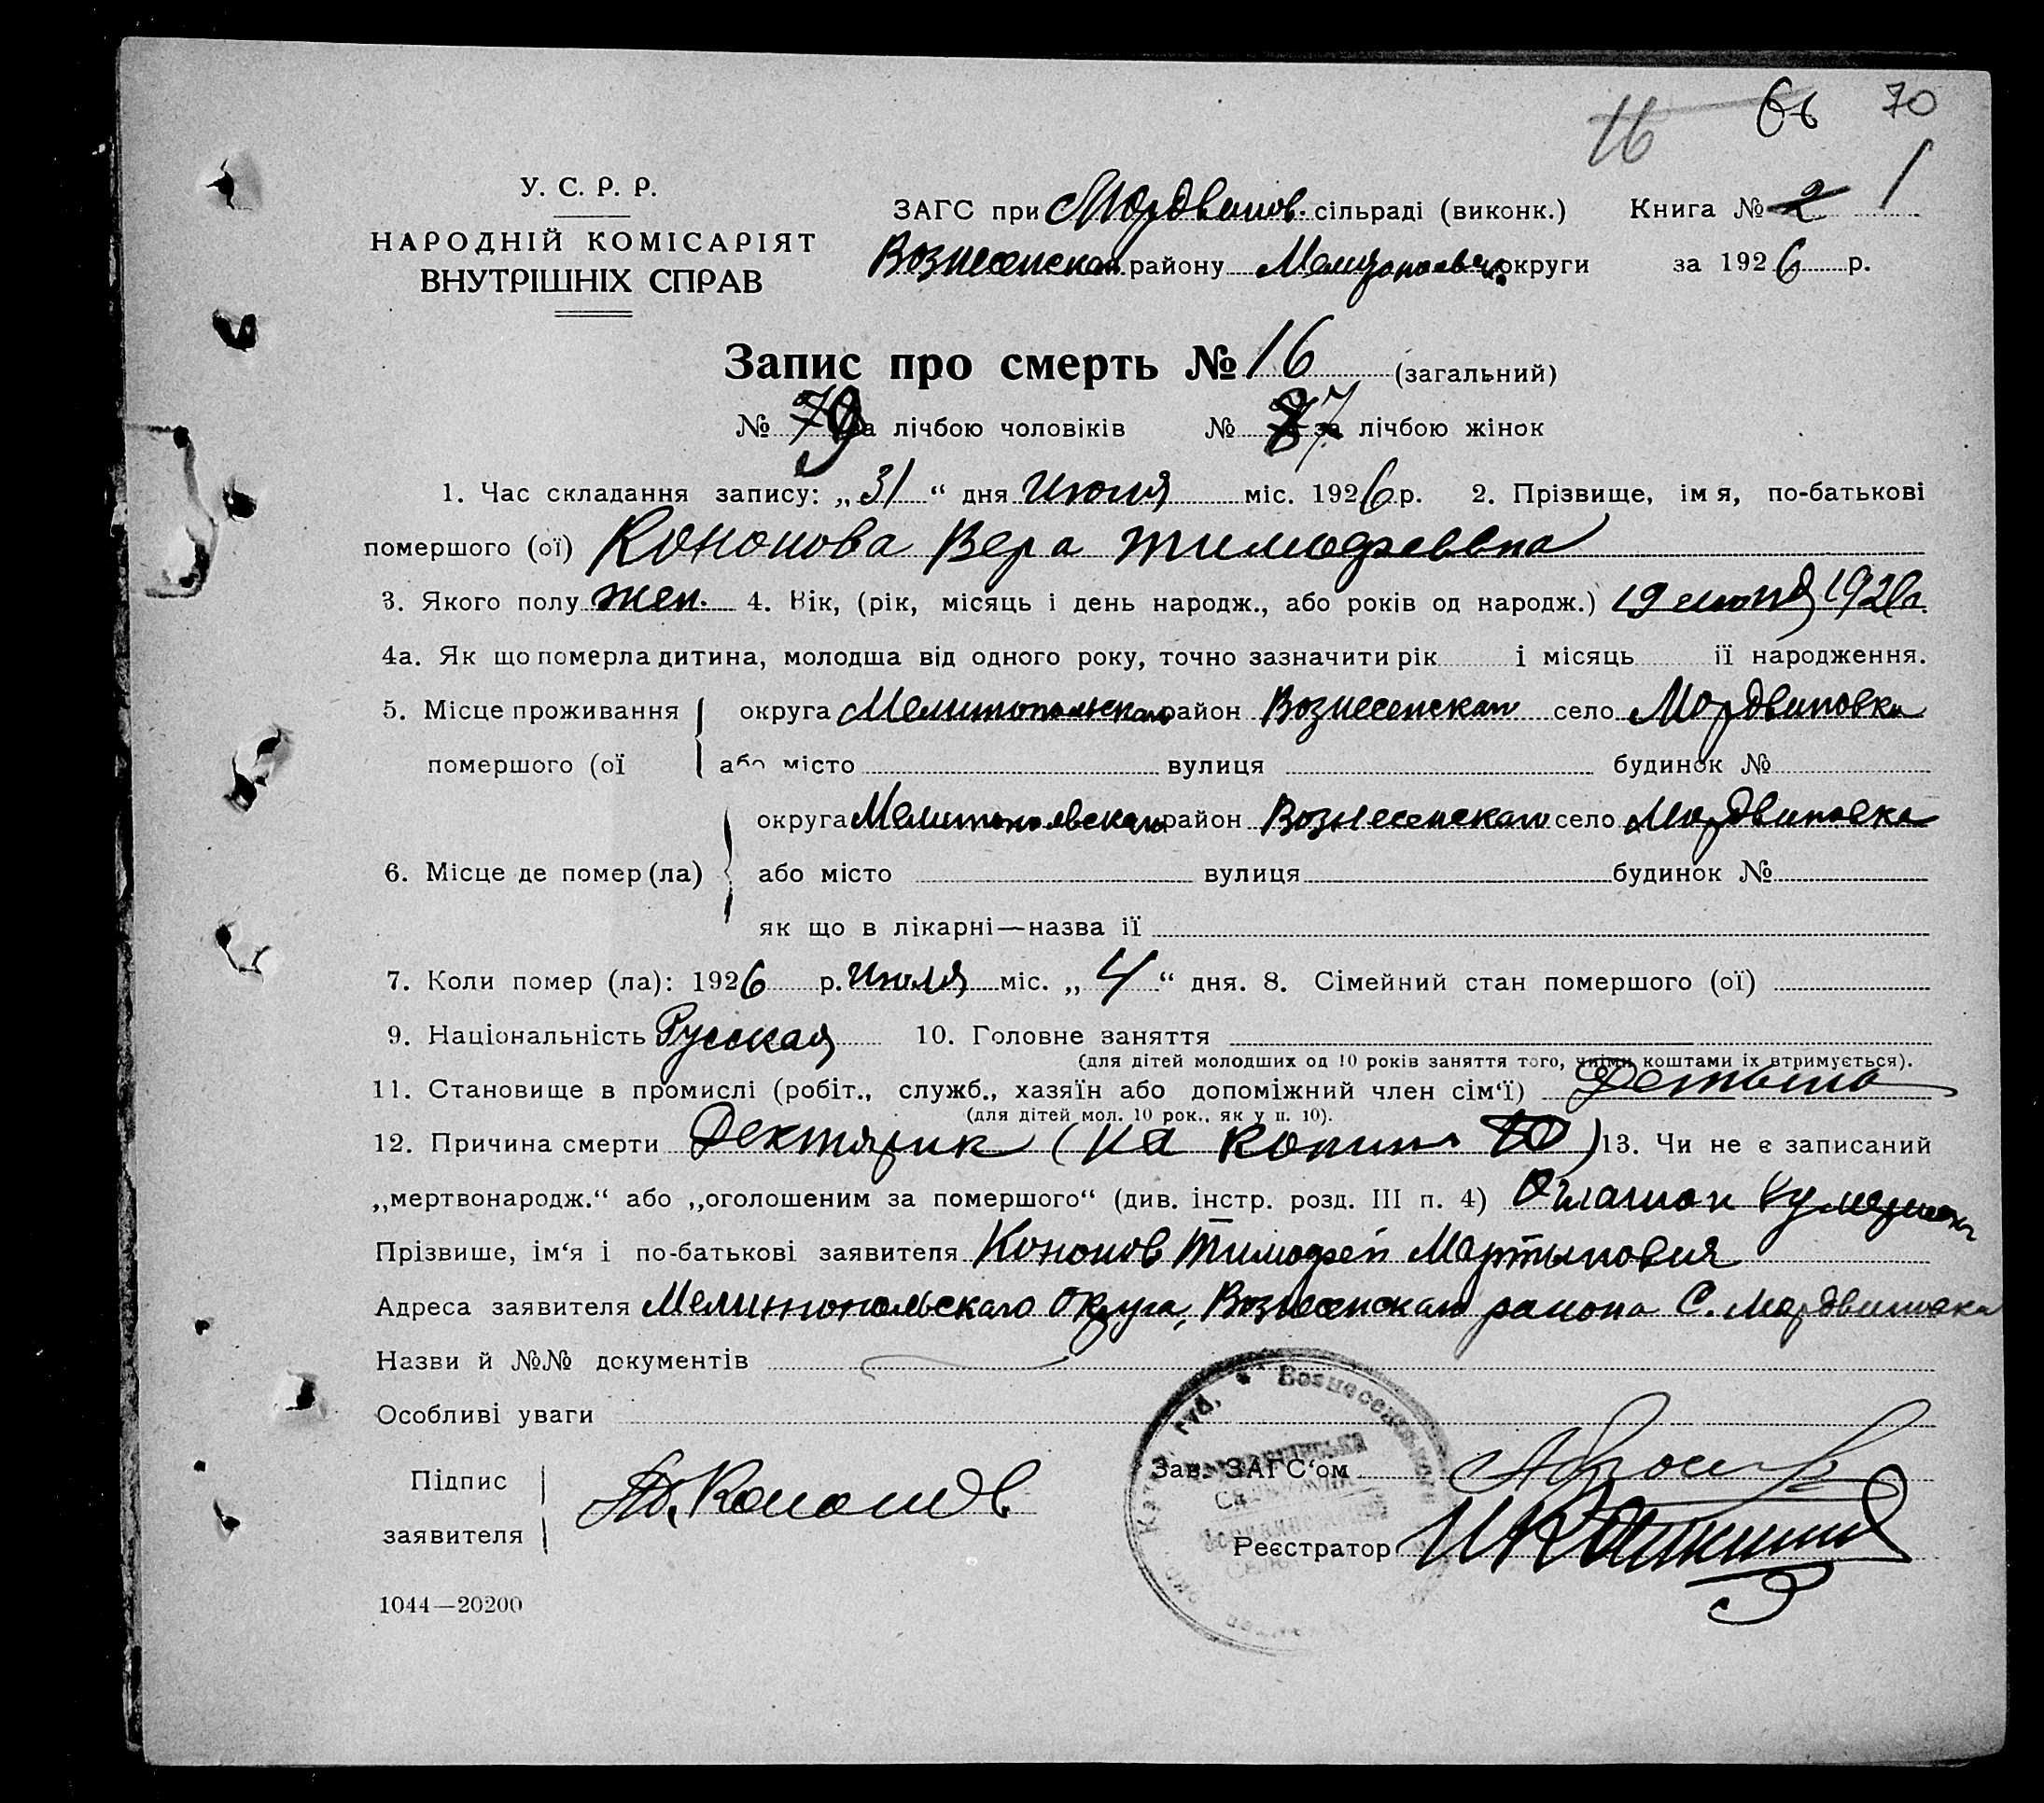 16 66 70
У. С. Р. Р.
НАРОДНІЙ КОМІСАРІЯТ
ВНУТРІШНІХ СПРАВ
ЗАГС при Мордвинов. сільраді (виконк.) Книга № 2 1
Вознесенскаго району Мелитопольск. округи за 1926 р.
Запис про смерть № 16 (загальний)
№ 9 за лічбою чоловіків № 7 за лічбою жінок
1. Час складання запису: „31“ дня июля міс. 1926 р. 2. Прізвище, імя, по-батькові
помершого (ої) Кононова Вера Тимофеевна
3. Якого полу жен. 4. Вік, (рік, місяць і день народж., або років од народж.) 19 1926 г.
4а. Як що померла дитина, молодша від одного року, точно зазначити рік і місяць її народження.
5. Місце проживання округа Мелитопольскаго район Вознесенскаго село Мордвиновка
помершого (ої або місто вулиця будинок №
округа Мелитопольскаго район Вознесенскаго село Мордвиновка
6. Місце де помер (ла) або місто вулиця будинок №
як що в лікарні—назва її
7. Коли помер (ла): 1926 р. июля міс. „4“ дня. 8. Сімейний стан помершого (ої)
9. Національність Русская 10. Головне заняття
(для дітей молодших од 10 років заняття того, чиїми коштами їх втримується).
11. Становище в промислі (робіт., служб., хазяїн або допоміжний член сім‘ї)
(для дітей мол. 10 рок., як у п. 10).
12. Причина смерти 13. Чи не є записаний
„мертвонародж.“ або „оголошеним за помершого“ (див. інстр. розд. III п. 4)
Прізвише, ім‘я і по-батькові заявителя Кононов Тимофей Мартынович
Адреса заявителя Мелитопольскаго округа, Вознесенскаго раиона С. Мордвиновка
Назви й №№ документів
Особливі уваги
Підпис
заявителя
Кононов
Зав. ЗАГС‘ом
Реєстратор
Вознесенський
1044—20200